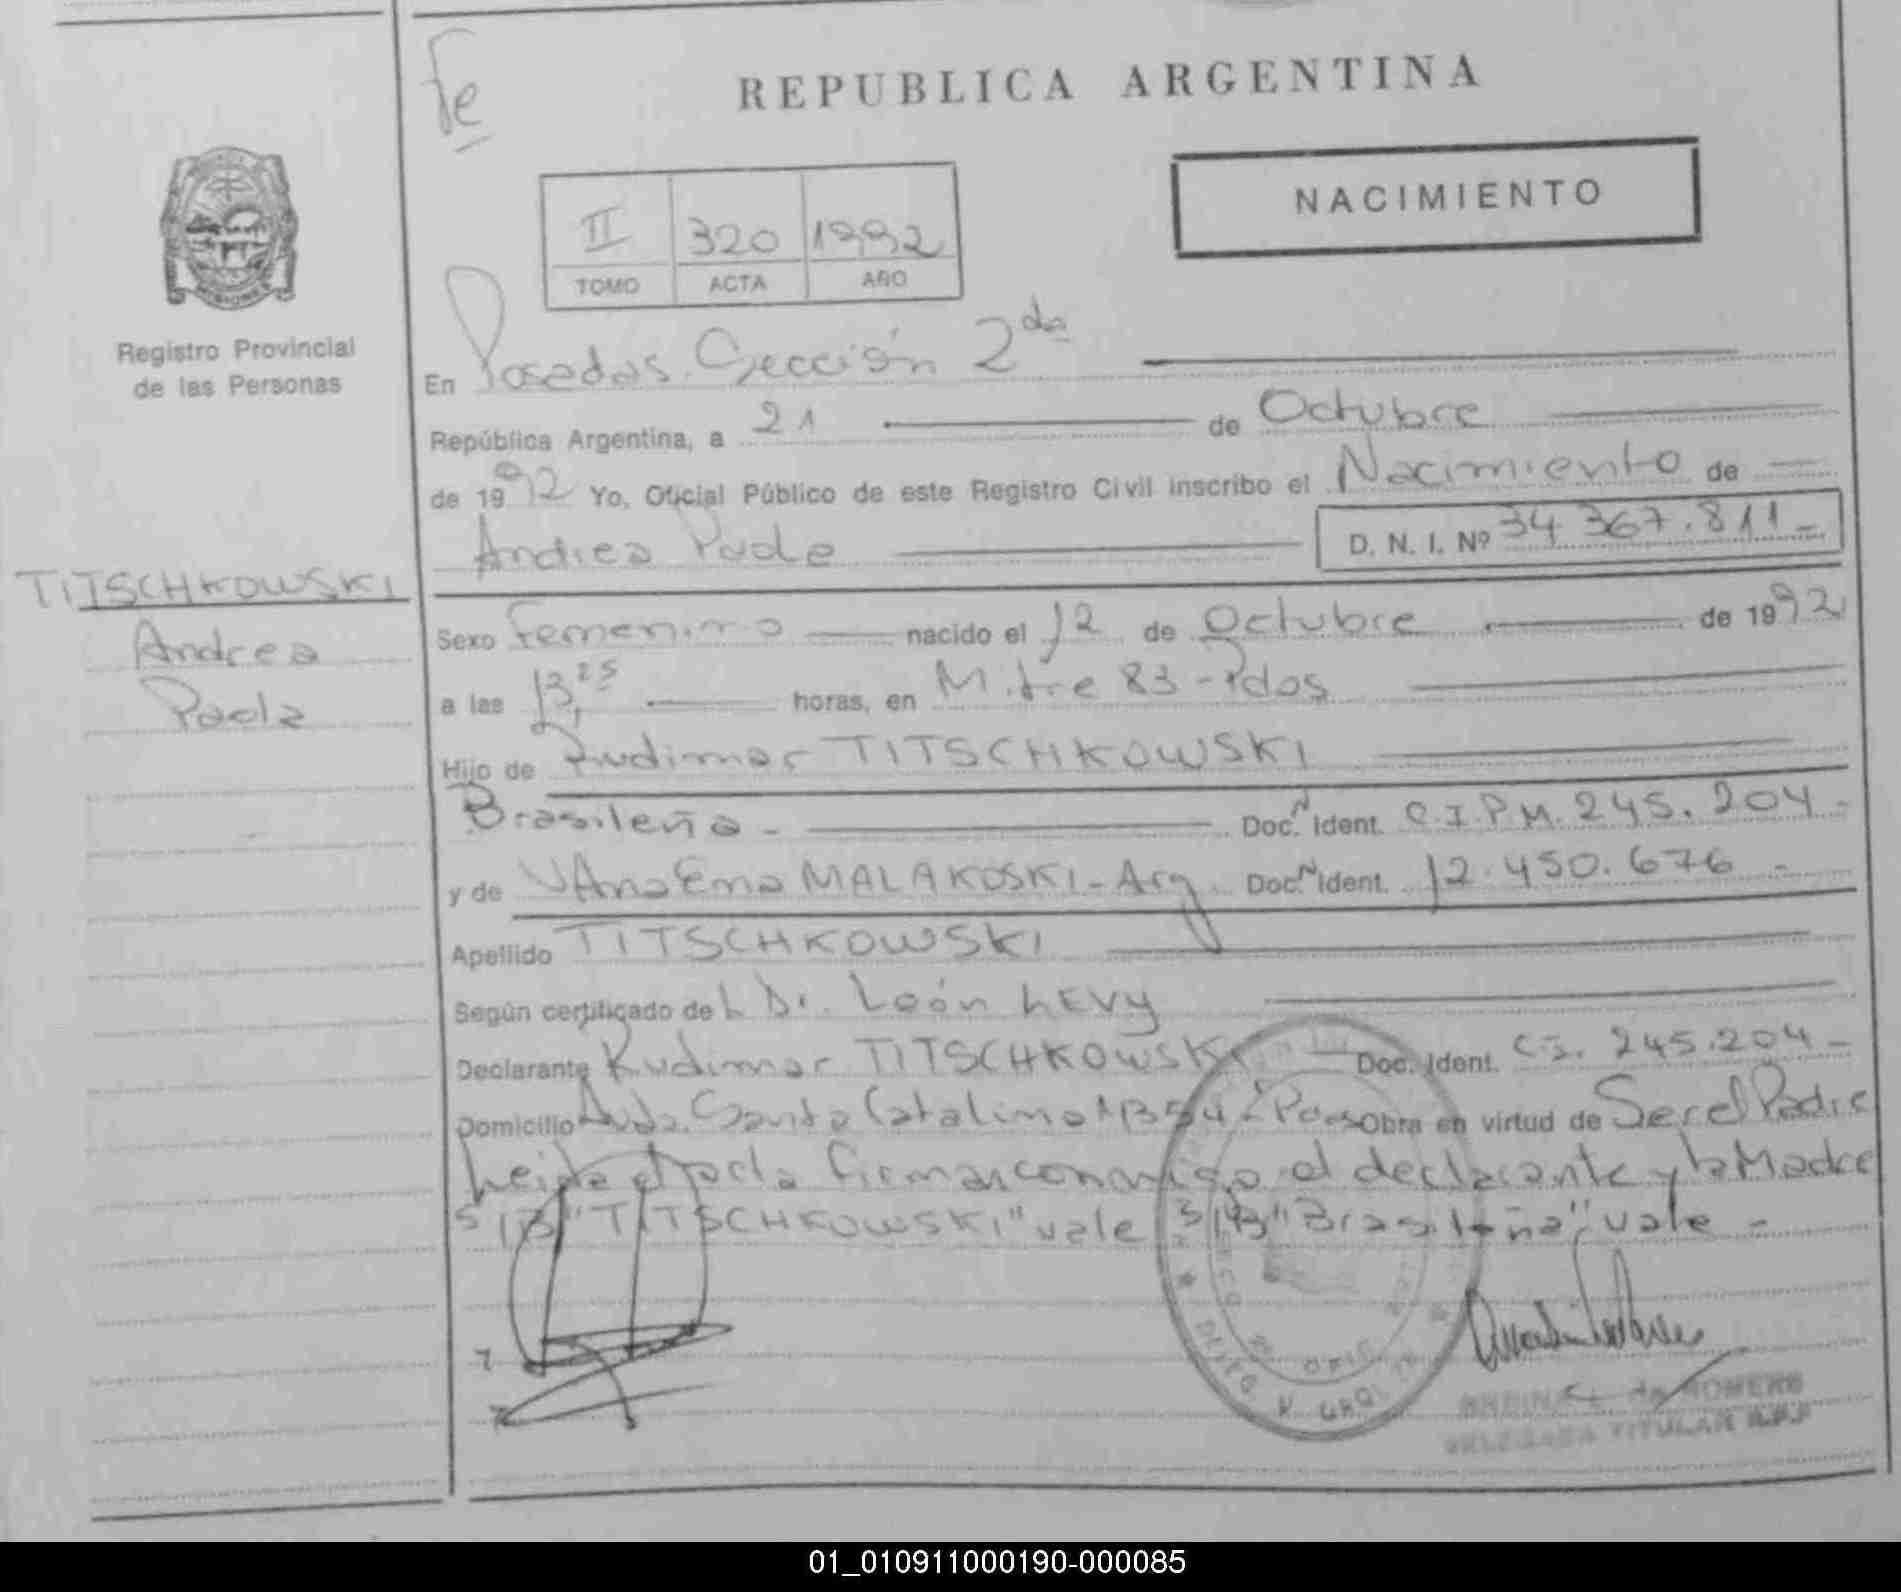 Fe
REPUBLICA ARGENTINA
NACIMIENTO
II 320 1992
TOMO ACTA AÑO
MISIONES
Registro Provincial
de las Personas
En Posadas Sección 2da
República Argentina, a 21 de Octubre
de 1992 Yo, Oficial Público de este Registro Civil inscribo el Nacimiento de
Andrea Paola D. N. I. Nº 34 367.811-
TITSCHKOWSKI
Andrea
Paola
Sexo Femenino nacido el 12 de Octubre de 1992
a las 13,25 horas, en Mitre 83 - Pdas
Hijo de Rudimar TITSCHKOWSKI
Brasileña - Doc. Ident. C.I.P.M. 245.204-
y de Ana Ema MALAKOSKI - Arg. Doc. Ident. 12.450.676 -
Apellido TITSCHKOWSKI
Según certificado del Dr. León LEVY
Declarante Rudimar TITSCHKOWSKI Doc. Ident. C.I. 245.204-
Domicilio Avda. Santa Catalina Obra en virtud de Ser el Padre
leída el acta firman conmigo el declarante y la Madre
S/B "TITSCHKOWSKI" vale S/B "Brasileña" vale -
de ROMERO
DELEGADA TITULAR
01_010911000190-000085